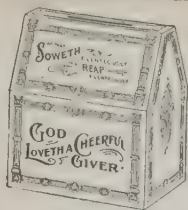 SOWETH
REAP
GOD
LOVETH A CHEERFUL
GIVER.